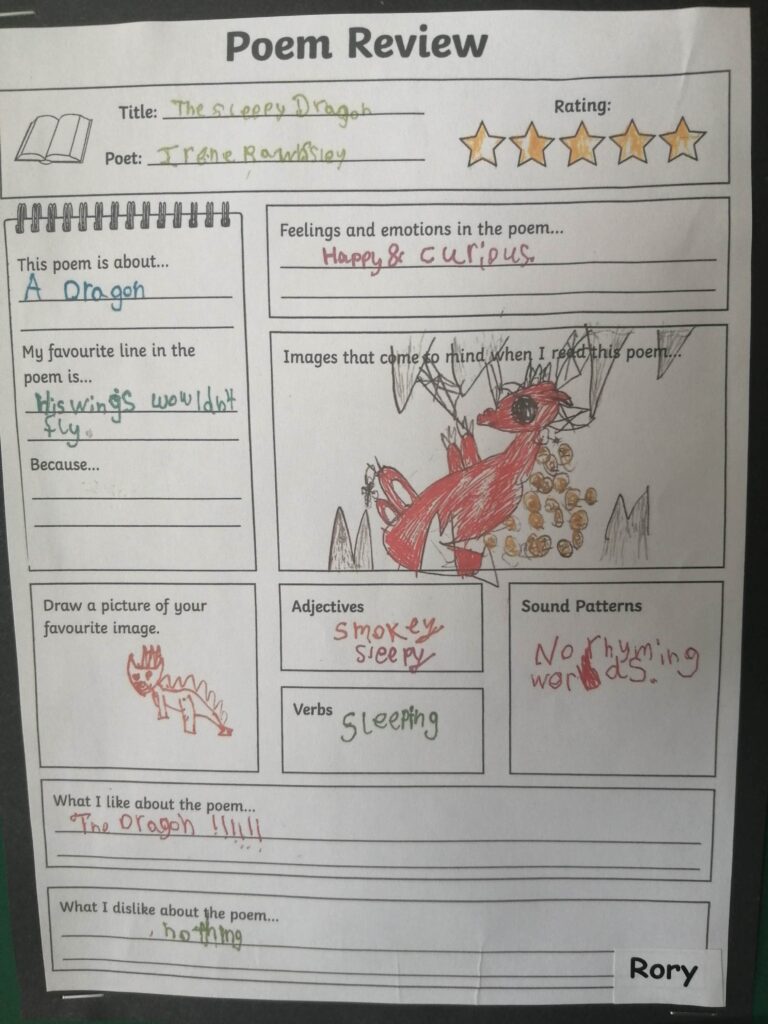 Poem Review
Title: The sleepy Dragon
Rating:
Poet: Irene Rawnsley
Feelings and emotions in the poem...
Happy & curious.
This poem is about...
A Dragon
My favourite line in the
poem is...
His wings wowldn't
fly.
Because...
Images that come to mind when I read this poem...
Draw a picture of your
favourite image.
Adjectives
smokey
sleepy
Verbs
sleeping
Sound Patterns
No rhyming
words.
What I like about the poem...
The Dragon !!!!!!
What I dislike about the poem...
nothing
Rory